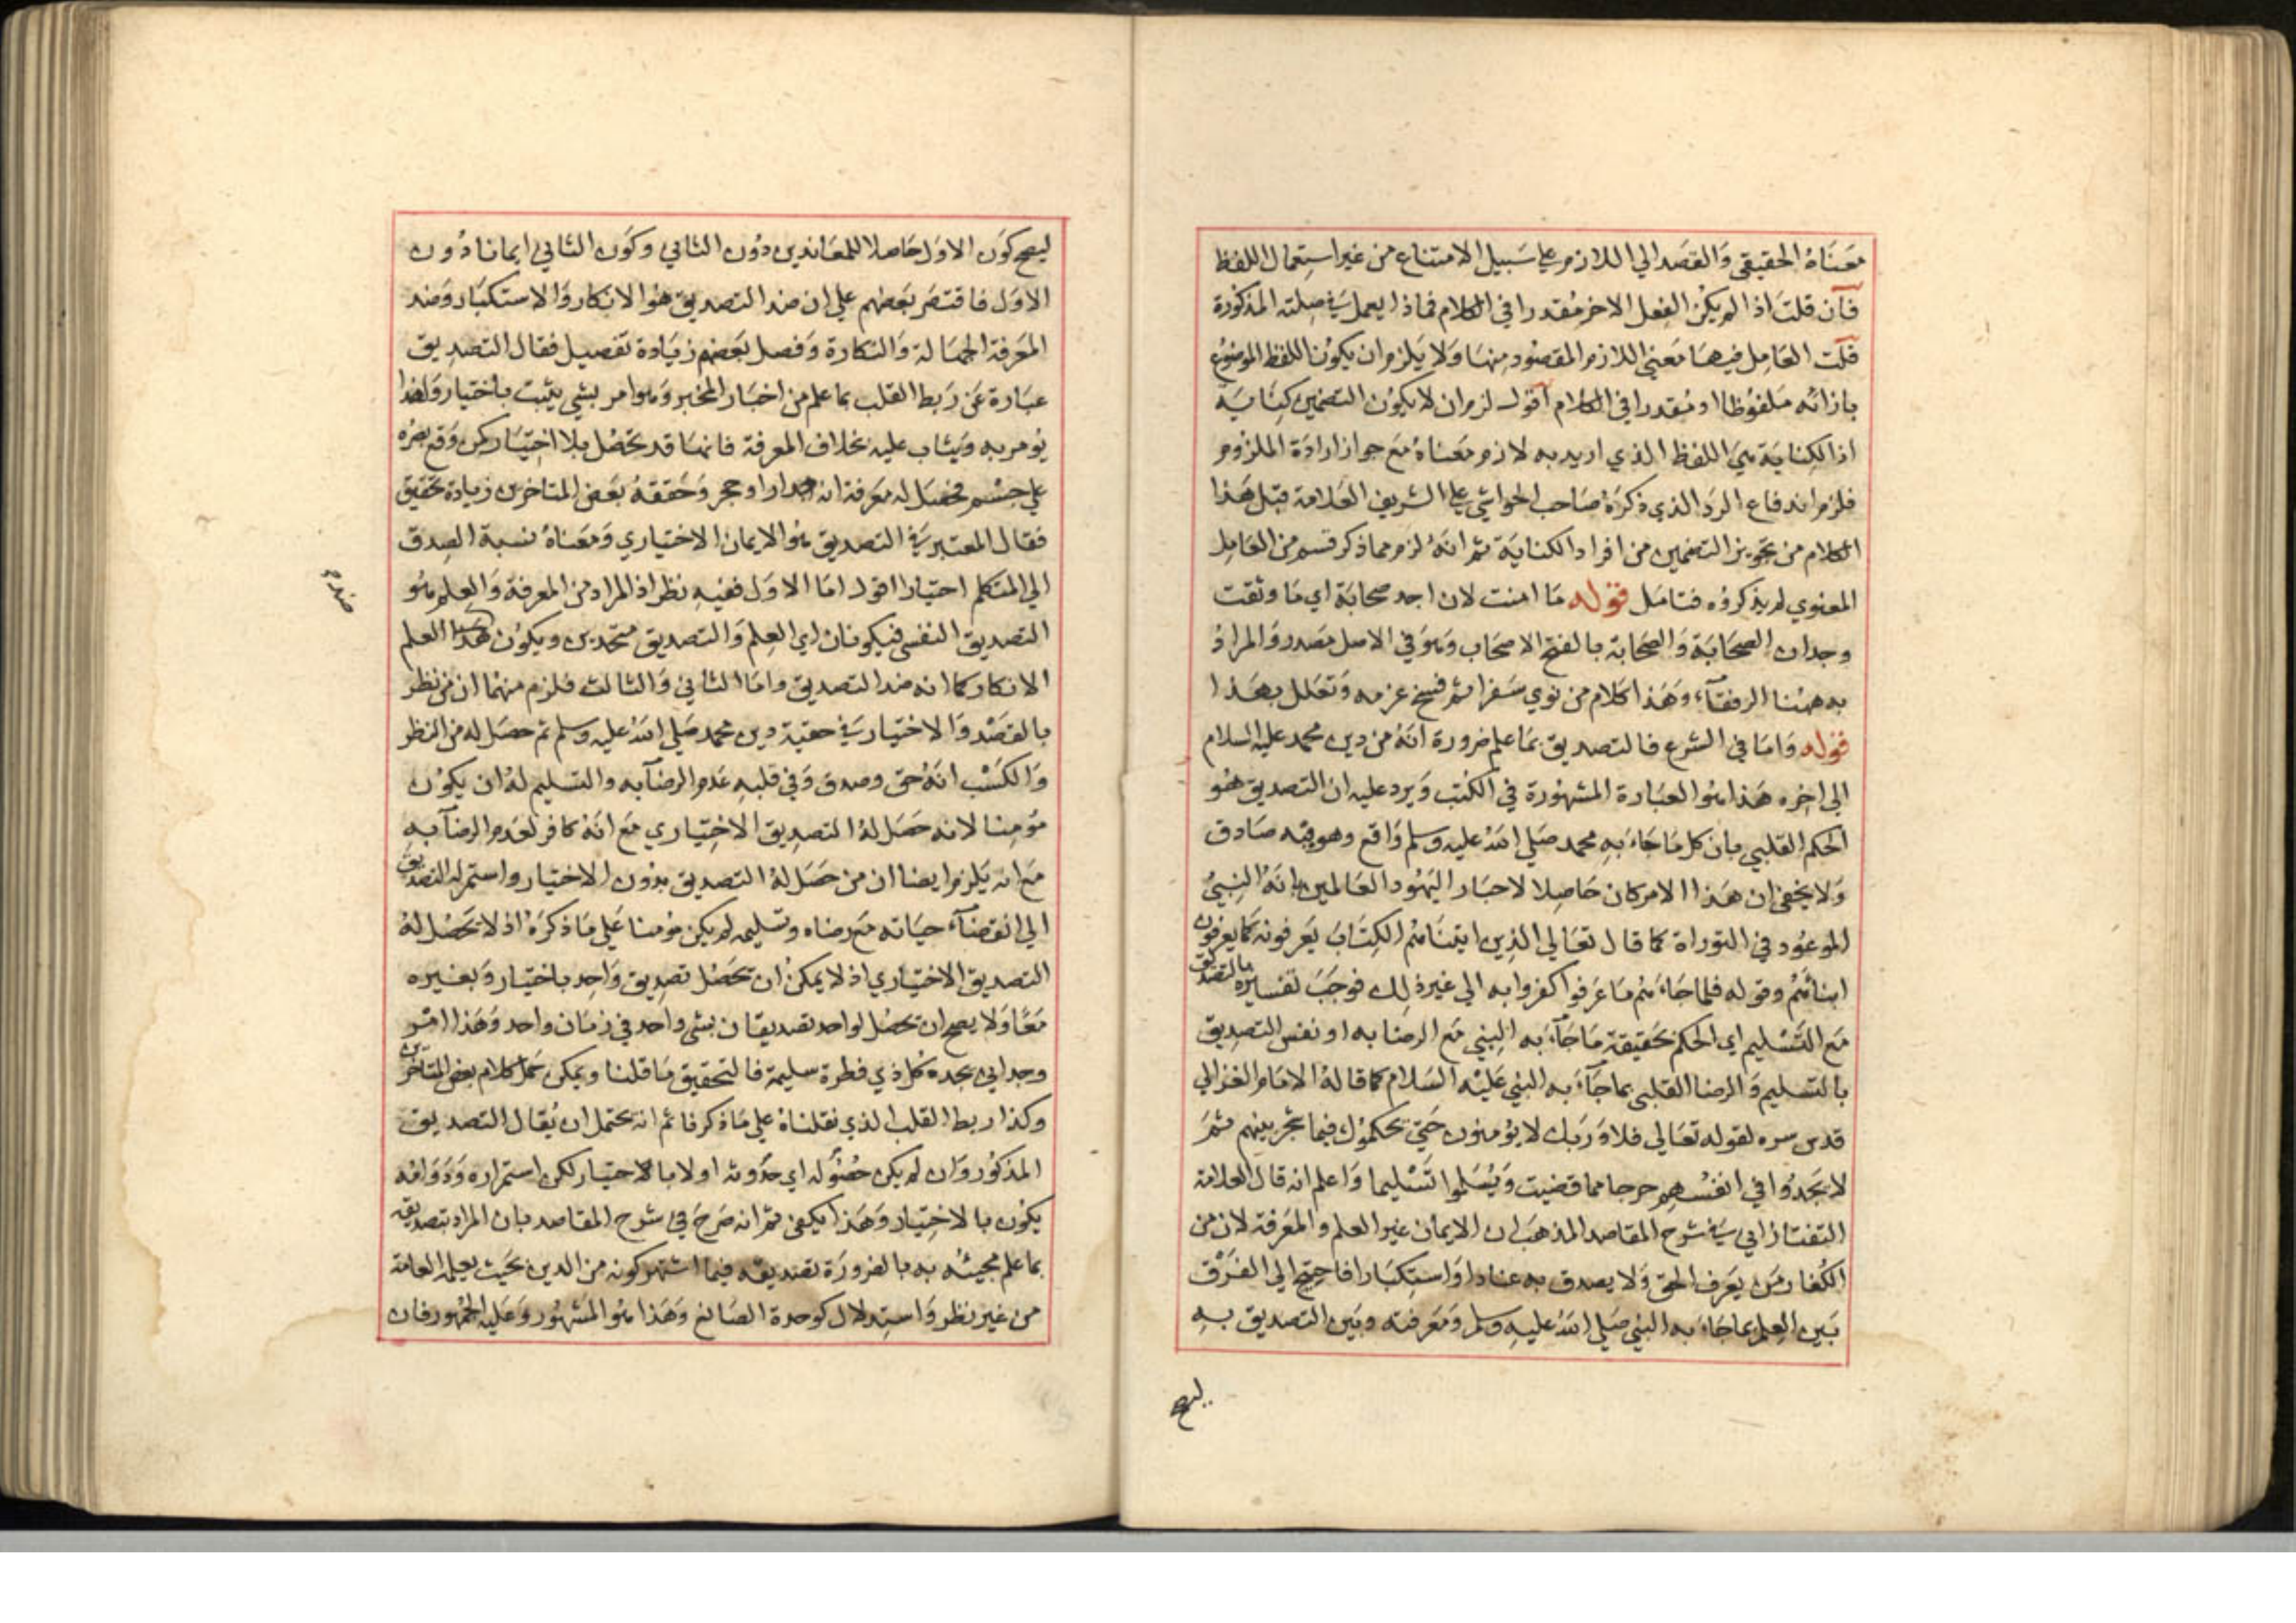 معناه الحقيقي والقصد الي اللازم علي سبيل الامتناع من غير استعمال اللفظ
فان قلت اذا لم يكن الفعل الاخر مقدرا في الكلام فماذا يعمل في صلته المذكورة
قلت العامل فيها معني اللازم المقصود منها ولا يلزم ان يكون اللفظ الموضوع
بازائه ملفوظا او مقدرا في الكلام اقول لزم ان لا يكون التضمين كناية
اذ الكناية هي اللفظ الذي اريد به لازم معناه مع جواز ارادة الملزوم
فلزم اندفاع الرد الذي ذكره صاحب الحواشي علي الشريف العلامة قبل هذا
الكلام من تجويز التضمين من افراد الكناية ثم انه لزم مما ذكر قسم من العامل
المعنوي لم يذكروه فتامل قوله ما امنت لان اجد صحابة اي ما وثقت
وجدان الصحابة والصحابة بالفتح الاصحاب وهو في الاصل مصدر والمراد
به ههنا الرفقآء وهذا كلام من نوي سفرا ثم فسخ عزمه وتعلل بهذا
قوله واما في الشرع فالتصديق بما علم ضرورة انه من دين محمد عليه السلام
الي اخره هذا هو العبارة المشهورة في الكتب ويرد عليه ان التصديق هو
الحكم القلبي بان كل ما جاء به محمد صلي الله عليه وسلم واقع وهو فيه صادق
ولا يخفي ان هذا الامر كان حاصلا لاحبار اليهود العالمين بانه النبي
الموعود في التوراة كما قال تعالي الذين ايتناهم الكتاب يعرفونه كما يعرفون
ابنائهم وقوله فلما جاءهم ما عرفوا كفروا به الي غير ذلك فوجب تفسيره بالتصديق
مع التسليم اي الحكم بحقيقة ما جآء به النبي مع الرضا به او نفس التصديق
بالتسليم والرضا القلبي بما جآء به النبي عليه السلام كما قاله الامام الغزالي
قدس سره لقوله تعالي فلا وربك لا يؤمنون حتي يحكموك فيما شجر بينهم ثم
لا يجدوا في انفسهم حرجا مما قضيت ويسلموا تسليما واعلم انه قال العلامة
التفتازاني في شرح المقاصد المذهب ان الايمان غير العلم والمعرفة لان من
الكفار من يعرف الحق ولا يصدق به عنادا واستكبارا فاحتيج الي الفرق
بين العلم بما جاء به النبي صلي الله عليه وسلم ومعرفته وبين التصديق به
ليصح
ليصح كون الاول حاصلا للمعاندين دون الثاني وكون الثاني ايمانا دون
الاول فاقتصر بعضهم علي ان ضد التصديق هو الانكار والاستكبار وضد
المعرفة الجهالة والنكارة وفصل بعضهم زيادة تفصيل فقال التصديق
عبارة عن ربط القلب بما علم من اخبار المخبر وهو امر بشي يثبت باختيار ولهذا
يؤمر به ويثاب عليه بخلاف المعرفة فانها قد تحصل بلا اختيار كمن وقع بصره
علي جسم فحصل له معرفة انه جدار او حجر وحققه بعض المتاخرين زيادة تحقيق
فقال المعتبر في التصديق هو الايمان الاختياري ومعناه نسبة الصدق
الي المتكلم اختيارا اقول اما الاول ففيه نظر اذ المراد من المعرفة والعلم هو
التصديق النفسي فيكونان اي العلم والتصديق متحدين ويكون ضد هذا العلم
ضده
الانكار كما انه ضد التصديق واما الثاني والثالث فلزم منهما ان من نظر
بالقصد والاختيار في حقية دين محمد صلي الله عليه وسلم ثم حصل له من النظر
والكسب انه حق وصدق وفي قلبه عدم الرضآ به والتسليم له ان يكون
مؤمنا لانه حصل له التصديق الاختياري مع انه كافر لعدم الرضآ به
مع انه يلزم ايضا ان من حصل له التصديق بدون الاختيار واستمر له التصديق
الي انقضآء حياته مع رضاه وتسليمه لم يكن مؤمنا علي ما ذكره اذ لا تحصل له
التصديق الاختياري اذ لا يمكن ان تحصل تصديق واحد باختيار وبغيره
معا ولا يصح ان تحصل لواحد تصديقان بشي واحد في زمان واحد وهذا امر
وجداني يجده كل ذي فطرة سليمة فالتحقيق ما قلنا ويمكن حمل كلام بعض المتاخرين
وكذا ربط القلب الذي نقلناه علي ما ذكر فائم انه يحتمل ان يقال التصديق
المذكور وان لم يكن حصوله اي حدوثه اولا بالاختيار لكن استمراره ودوامه
يكون بالاختيار وهذا يكفي ثم انه صرح في شرح المقاصد بان المراد بتصديقه
بما علم مجيئه به بالضرورة تصديقه فيما اشتهر كونه من الدين بحيث يعلمه العامة
من غير نظر واستدلال كوحدة الصانع وهذا هو المشهور وعليه الجمهور فان